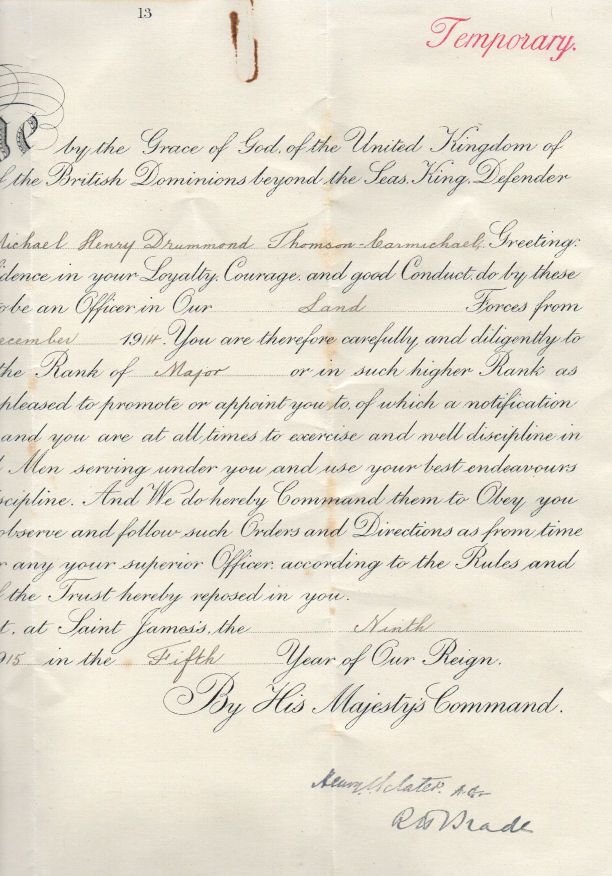 13
Temporary.
by the Grace of God, of the United Kingdom of
the British Dominions beyond the Seas, King, Defender
Michael Henry Drummond Thomson-Carmichael, Greeting:
idence in your Loyalty, Courage, and good Conduct, do by these
to be an Officer in Our Land Forces from
ecember 1914. You are therefore carefully and diligently to
the Rank of Major or in such higher Rank as
pleased to promote or appoint you to, of which a notification
and you are at all times to exercise and well discipline in
Men serving under you and use your best endeavours
scipline. And We do hereby Command them to Obey you
observe and follow such Orders and Directions as from time
any your superior Officer, according to the Rules and
the Trust hereby reposed in you.
t, at Saint James's, the Ninth
15 in the Fifth Year of Our Reign.
By His Majesty's Command.
Henry Sclater. A.G.
R H Brade